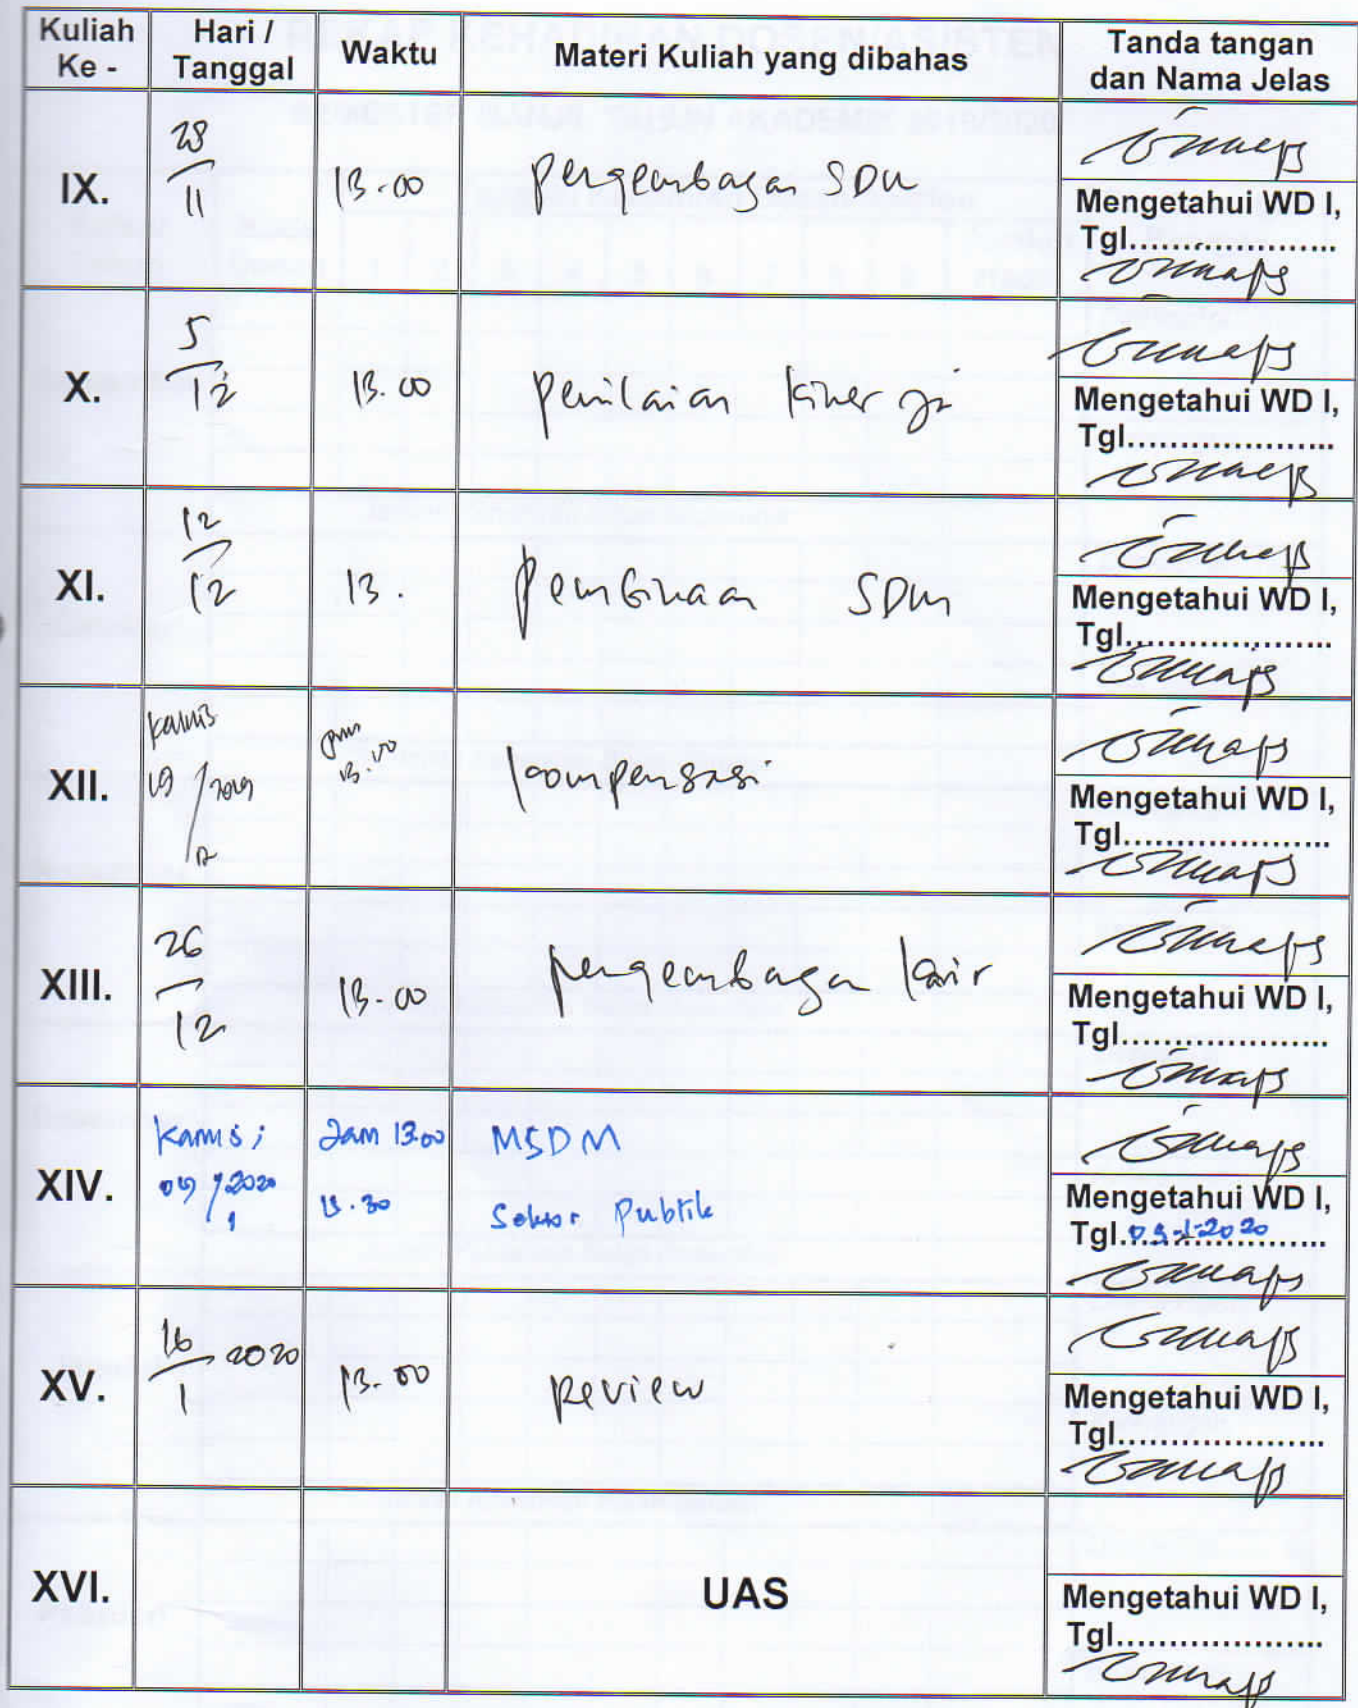 Kuliah Ke -
Hari / Tanggal
Waktu
Materi Kuliah yang dibahas
Tanda tangan dan Nama Jelas
IX.
28/11
13.00
pengembagan SDM
Mengetahui WD I,
Tgl....................
X.
5/12
13.00
penilaian kinerja
Mengetahui WD I,
Tgl....................
XI.
12/12
13.
pembinaan SDM
Mengetahui WD I,
Tgl....................
XII.
Kamis
19/12 2019
13.00
kompensasi
Mengetahui WD I,
Tgl....................
XIII.
26/12
13.00
pengembagan karir
Mengetahui WD I,
Tgl....................
XIV.
Kamis;
09/1 2020
Jam 13.00
MSDM
Sektor Publik
Mengetahui WD I,
Tgl. 09-1-2020
XV.
16/1 2020
13.00
review
Mengetahui WD I,
Tgl....................
XVI.
UAS
Mengetahui WD I,
Tgl....................